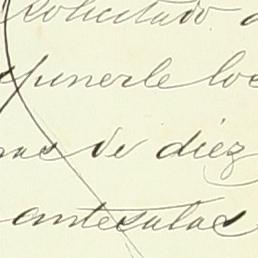 solicitado
ponerle los
mas de diez
antesalas